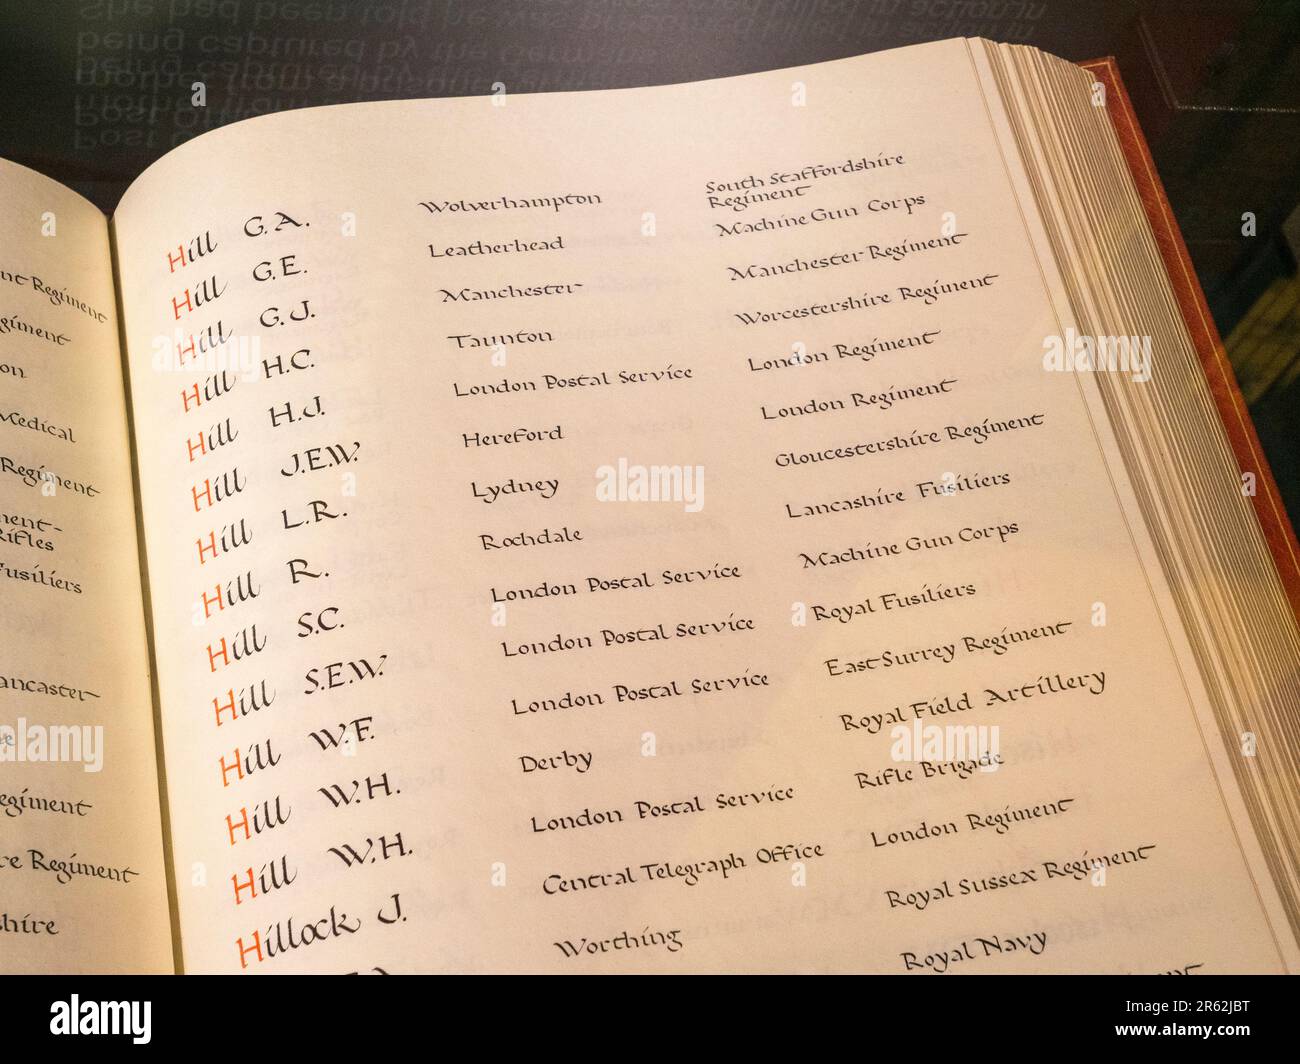 Regiment
Medical
Regiment
Rifles
Fusiliers
Regiment
Hill G.A. Wolverhampton South Staffordshire
Regiment
Hill G.E. Leatherhead Machine Gun Corps
Hill G.J. Manchester Manchester Regiment
Hill H.C. Taunton Worcestershire Regiment
Hill H.J. London Postal Service London Regiment
Hill J.E.W. Hereford London Regiment
Hill L.R. Lydney Gloucestershire Regiment
Hill R. Rochdale Lancashire Fusiliers
Hill S.C. London Postal Service Machine Gun Corps
Hill S.E.W. London Postal Service Royal Fusiliers
Hill W.F. London Postal Service East Surrey Regiment
Hill W.H. Derby Royal Field Artillery
Hill W.H. London Postal Service Rifle Brigade
Hillock J. Central Telegraph Office London Regiment
Worthing Royal Sussex Regiment
Royal Navy
alamy
Image ID: 2R62JBT
www.alamy.com